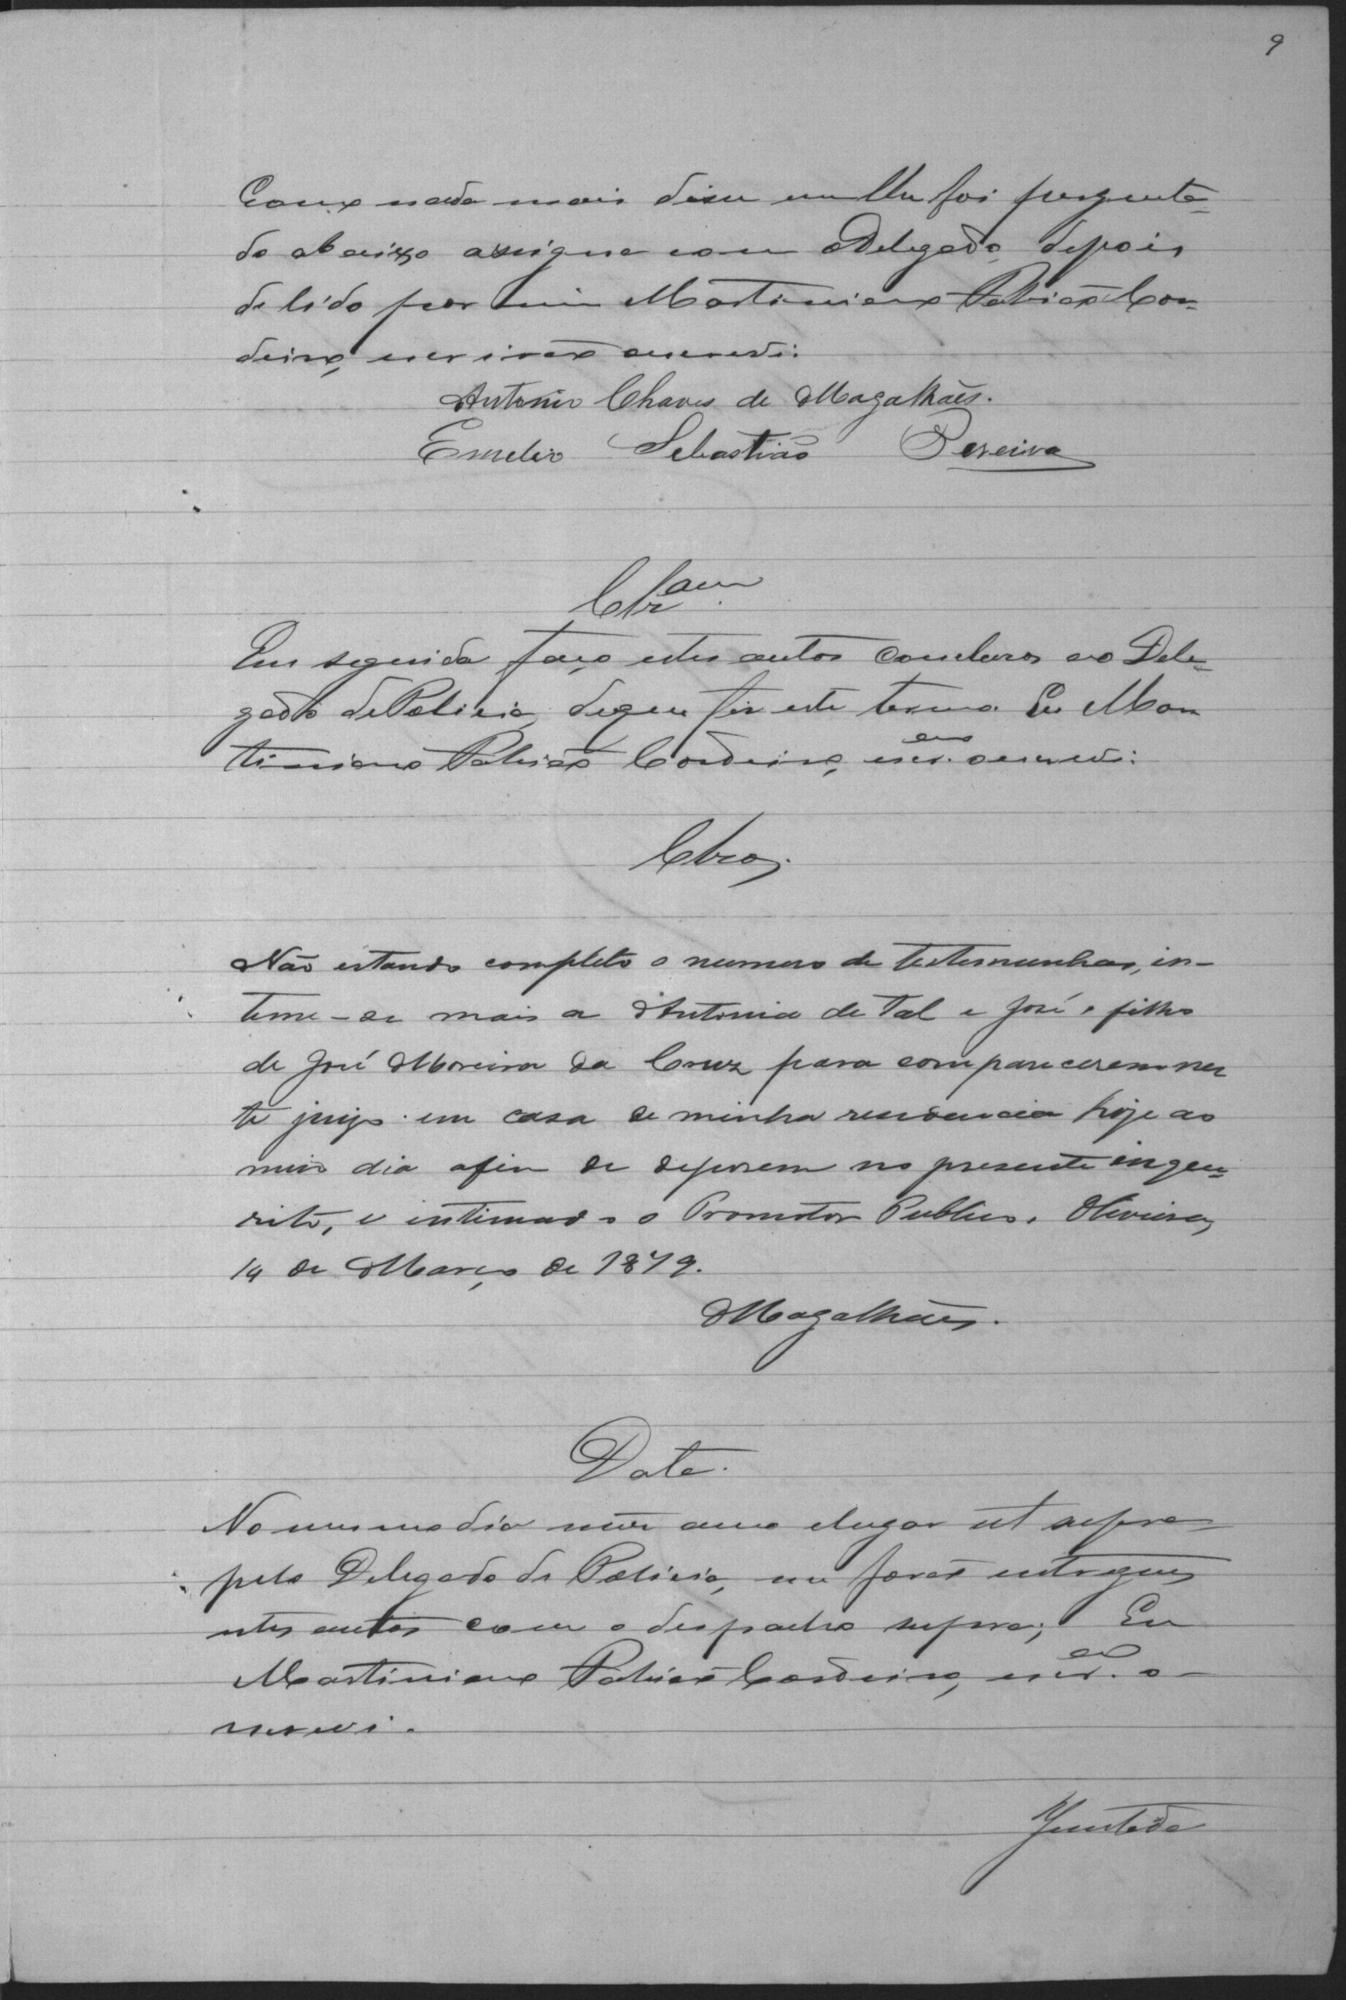 9
E como nada mais disse nem lhe foi pergunta-
do abaixo assigna com o Delegado, depois
de lido por mim Martiniano Patricio Cor-
deiro, escrivão o escrevi:
Antonio Chaves de Magalhães.
Emelio Sebastião Pereira
Clzam
Em seguida faço estes autos conclusos ao Dele-
gado de Policia, de que fiz este termo. Eu Mar
tiniano Patricio Cordeiro, escr.am o escrevi:
Clzos.
Não estando completo o numero de testemunhas, in-
time-se mais a Antonia de Tal e José, filho
de José Moreira da Cruz para comparecerem nes
te juizo em casa de minha residencia hoje ao
meio dia afim de deporem no presente inque-
rito, e intimado o Promotor Publico. Oliveira,
14 de Março de 1879.
Magalhães.
Data.
No mesmo dia mez anno e lugar ut supra
pelo Delegado de Policia, me forão entregues
estes autos com o despacho supra; Eu
Martiniano Patricio Cordeiro, escr.am o
escrevi.
Juntada